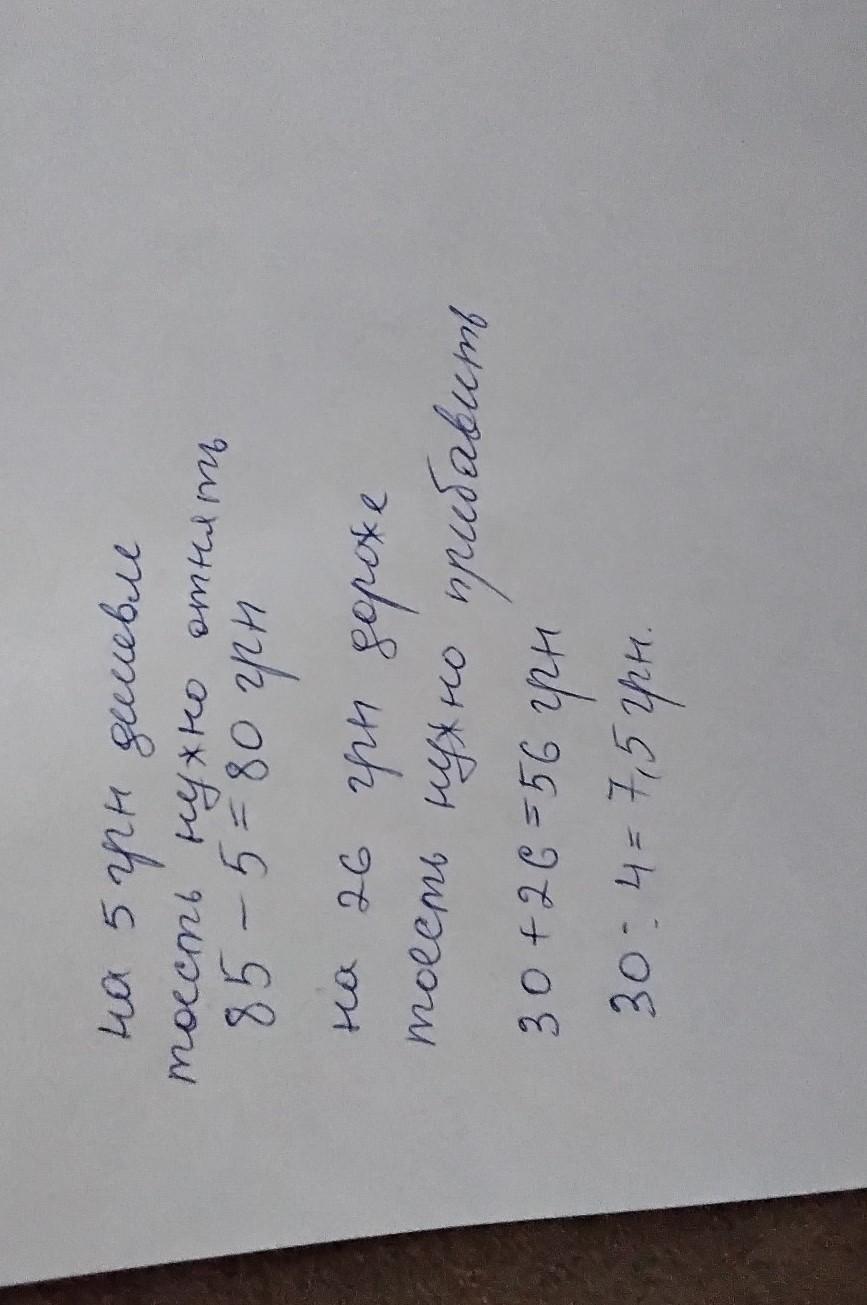 на 5 грн дишевле
тоесть нужно отнять
85 - 5 = 80 грн
на 26 грн дороже
тоесть нужно прибавить
30 + 26 = 56 грн
30 : 4 = 7,5 грн.